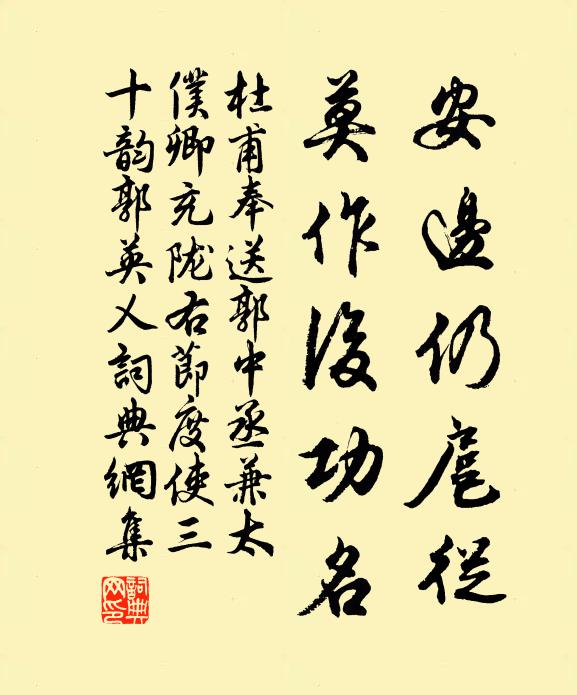 安邊仍扈從
莫作後功名
杜甫奉送郭中丞兼太
僕卿充陇右節度使三
十韵郭英乂詞典網集
詞典網印